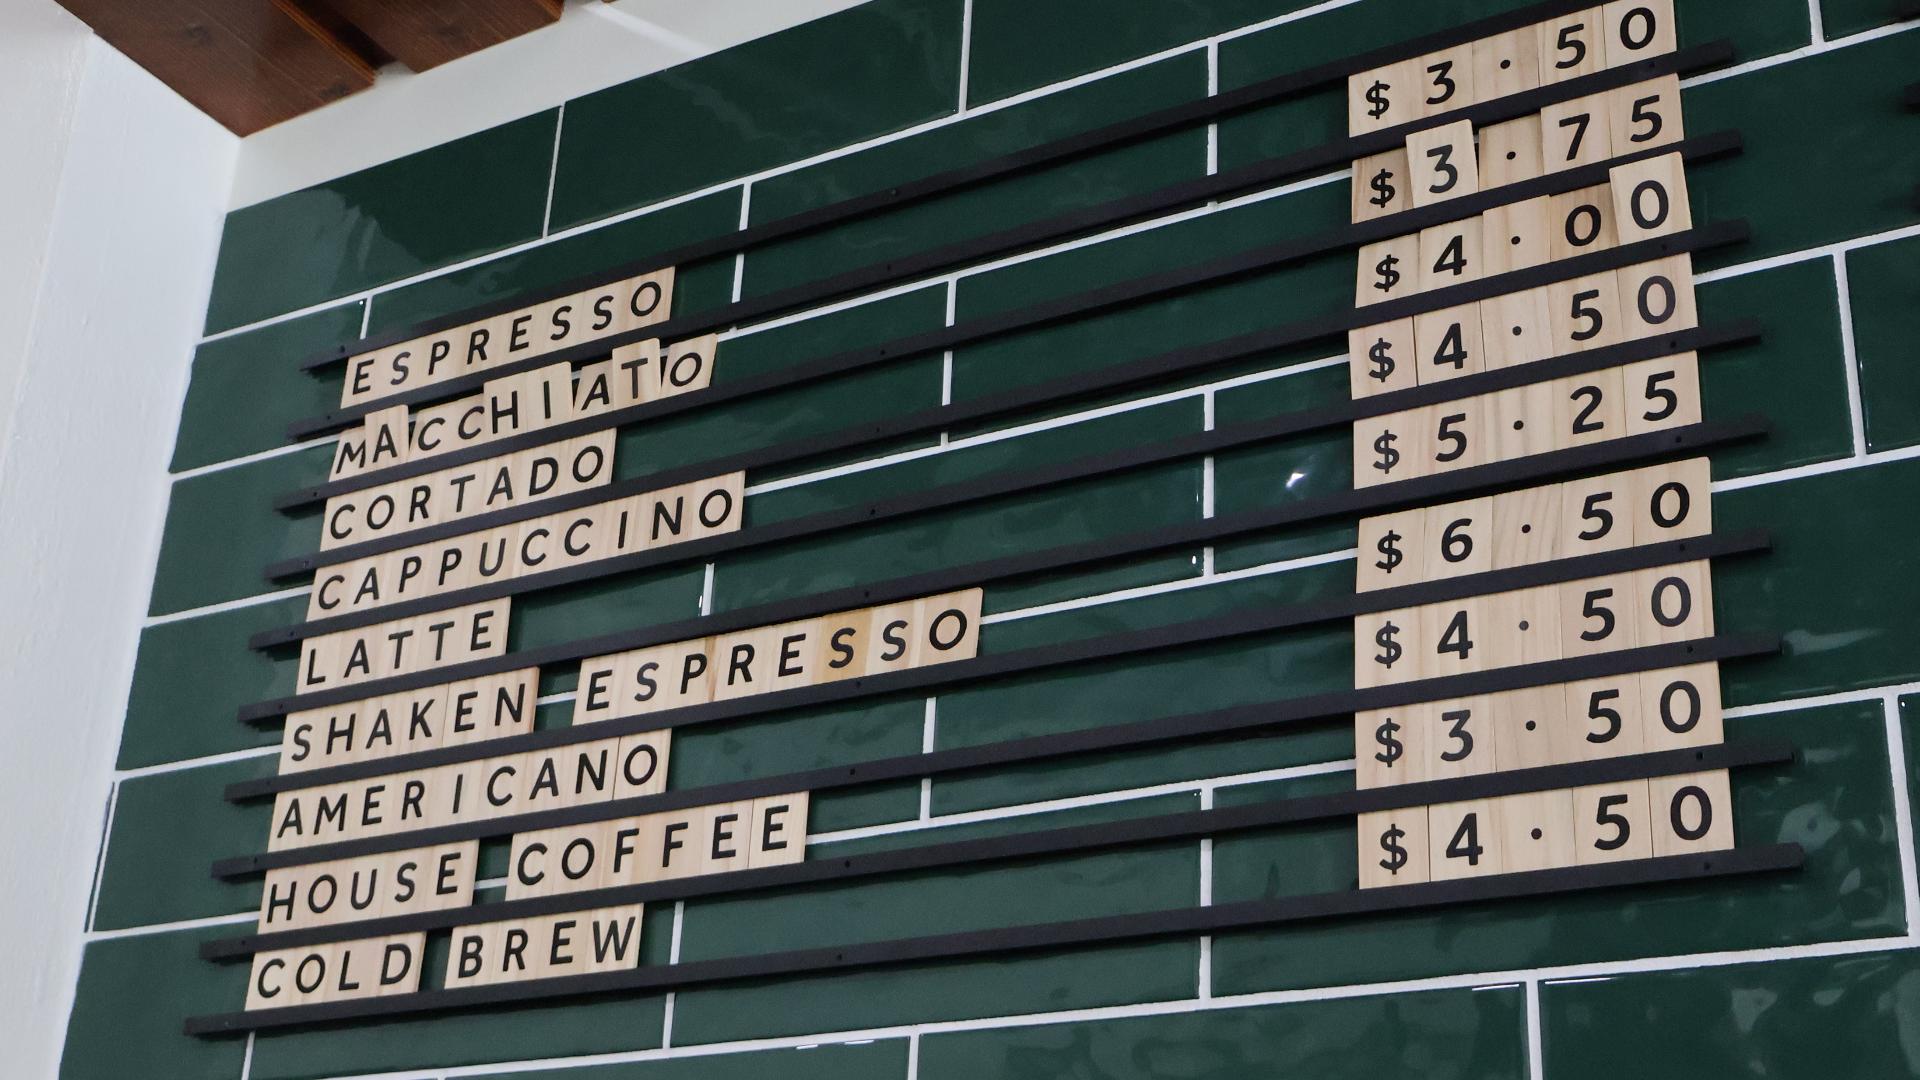 ESPRESSO $3.50
MACCHIATO $3.75
CORTADO $4.00
CAPPUCCINO $4.50
LATTE $5.25
SHAKEN ESPRESSO $6.50
AMERICANO $4.50
HOUSE COFFEE $3.50
COLD BREW $4.50